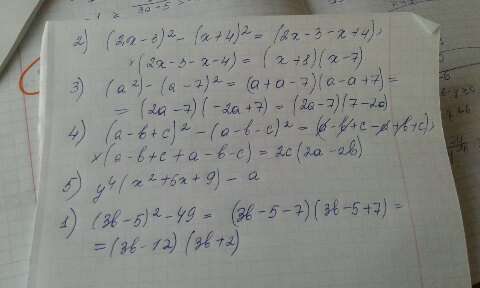 2) (2x-3)² - (x+4)² = (2x-3-x+4)·
×(2x-3-x-4) = (x+8)(x-7)
3) (a²) - (a-7)² = (a+a-7)(a-a+7) =
= (2a-7)(-2a+7) = (2a-7)(7-2a)
4) (a-b+c)² - (a-b-c)² = (a-b+c-a+b+c)·
×(a-b+c+a-b-c) = 2c(2a-2b)
5) y⁴(x²+6x+9) - a
1) (3b-5)² - 49 = (3b-5-7)(3b-5+7) =
= (3b-12)(3b+2)